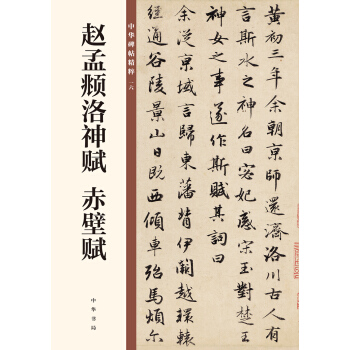 中华碑帖精粹 一六
赵孟頫洛神赋 赤壁赋
中华书局
黄初三年余朝京師還濟洛川古人有
言斯水之神名曰宓妃感宋玉對楚王
神女之事遂作斯賦其詞曰
余從京域言歸東藩背伊闕越轘轅
經通谷陵景山日既西傾車殆馬煩尔